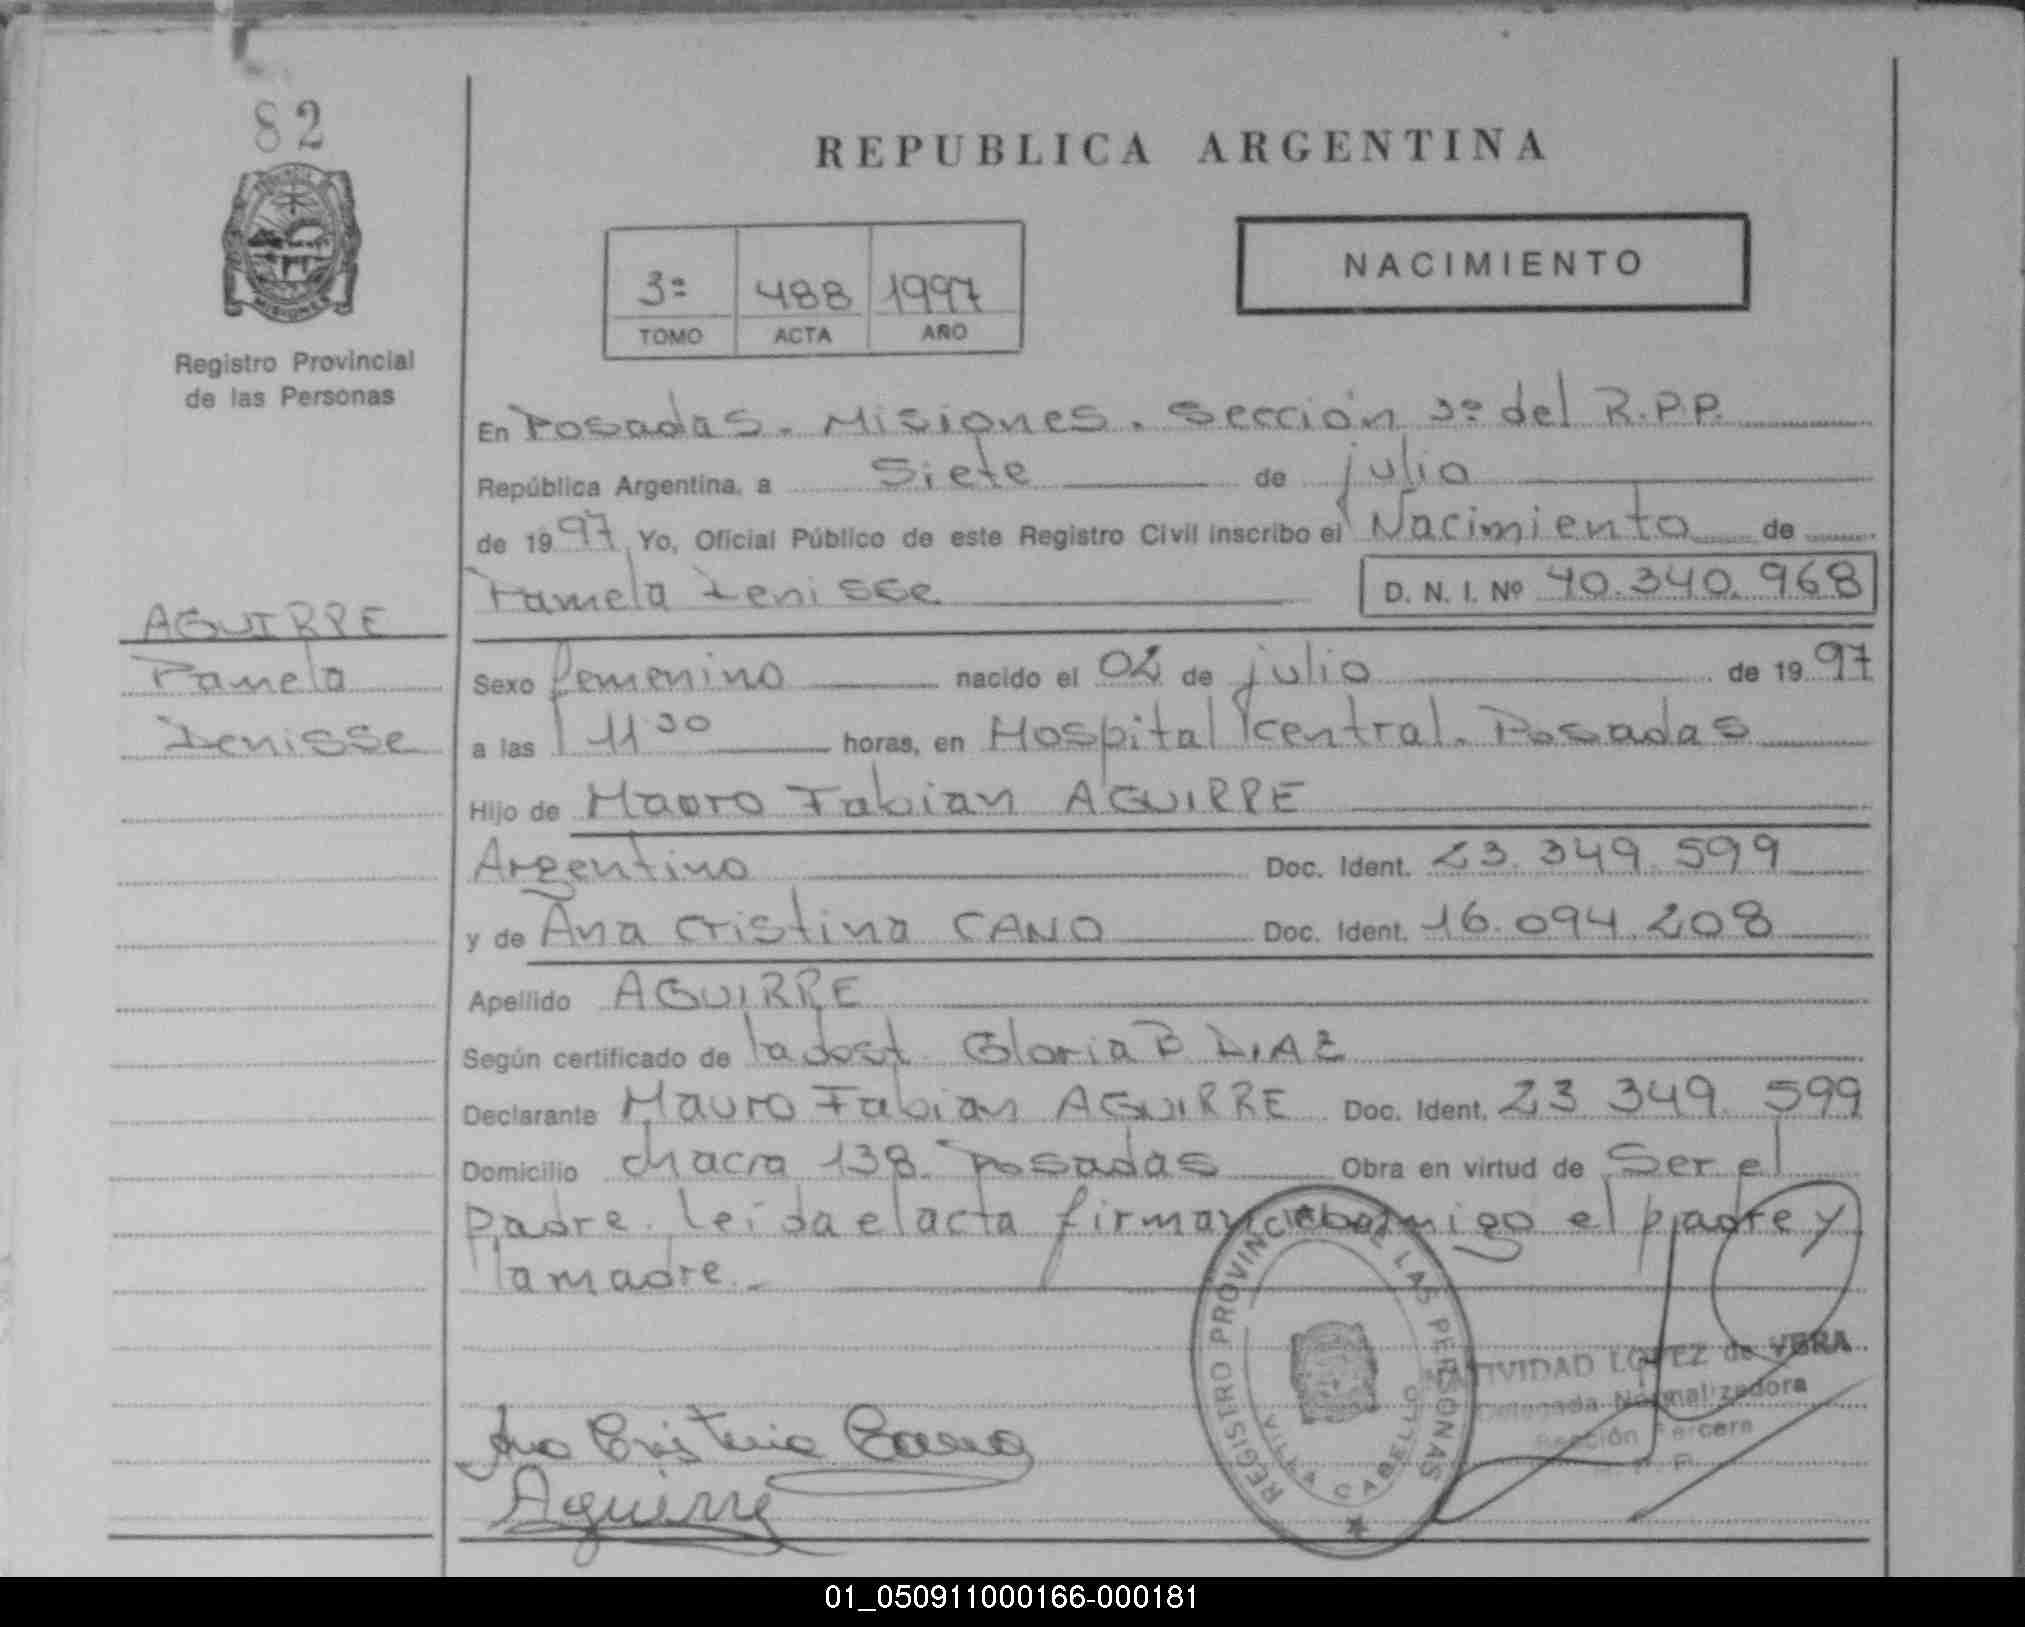 82
REPUBLICA ARGENTINA
3º 488 1997
TOMO ACTA AÑO
NACIMIENTO
MISIONES
Registro Provincial
de las Personas
En Posadas. Misiones. Sección 3º del R.P.P.
República Argentina, a Siete de julio
de 1997 Yo, Oficial Público de este Registro Civil inscribo el Nacimiento de
Pamela Denisse D. N. I. Nº 40.340.968
AGUIRRE
Pamela
Denisse
Sexo femenino nacido el 02 de julio de 1997
a las 11 30 horas, en Hospital central. Posadas
Hijo de Mauro Fabian AGUIRRE
Argentino Doc. Ident. 23.349.599
y de Ana Cristina CANO Doc. Ident. 16.094.208
Apellido AGUIRRE
Según certificado de la obst. Gloria B DIAZ
Declarante Mauro Fabian AGUIRRE Doc. Ident. 23 349. 599
Domicilio chacra 138. Posadas Obra en virtud de Ser el
padre. leida el acta firman conmigo el padre y
la madre.-
REGISTRO PROVINCIAL DE LAS PERSONAS
VILLA CABELLO
NATIVIDAD LOPEZ de VERA
Delegada Normalizadora
Sección Tercera
Ana Cristina Cano
Aguirre
01_050911000166-000181